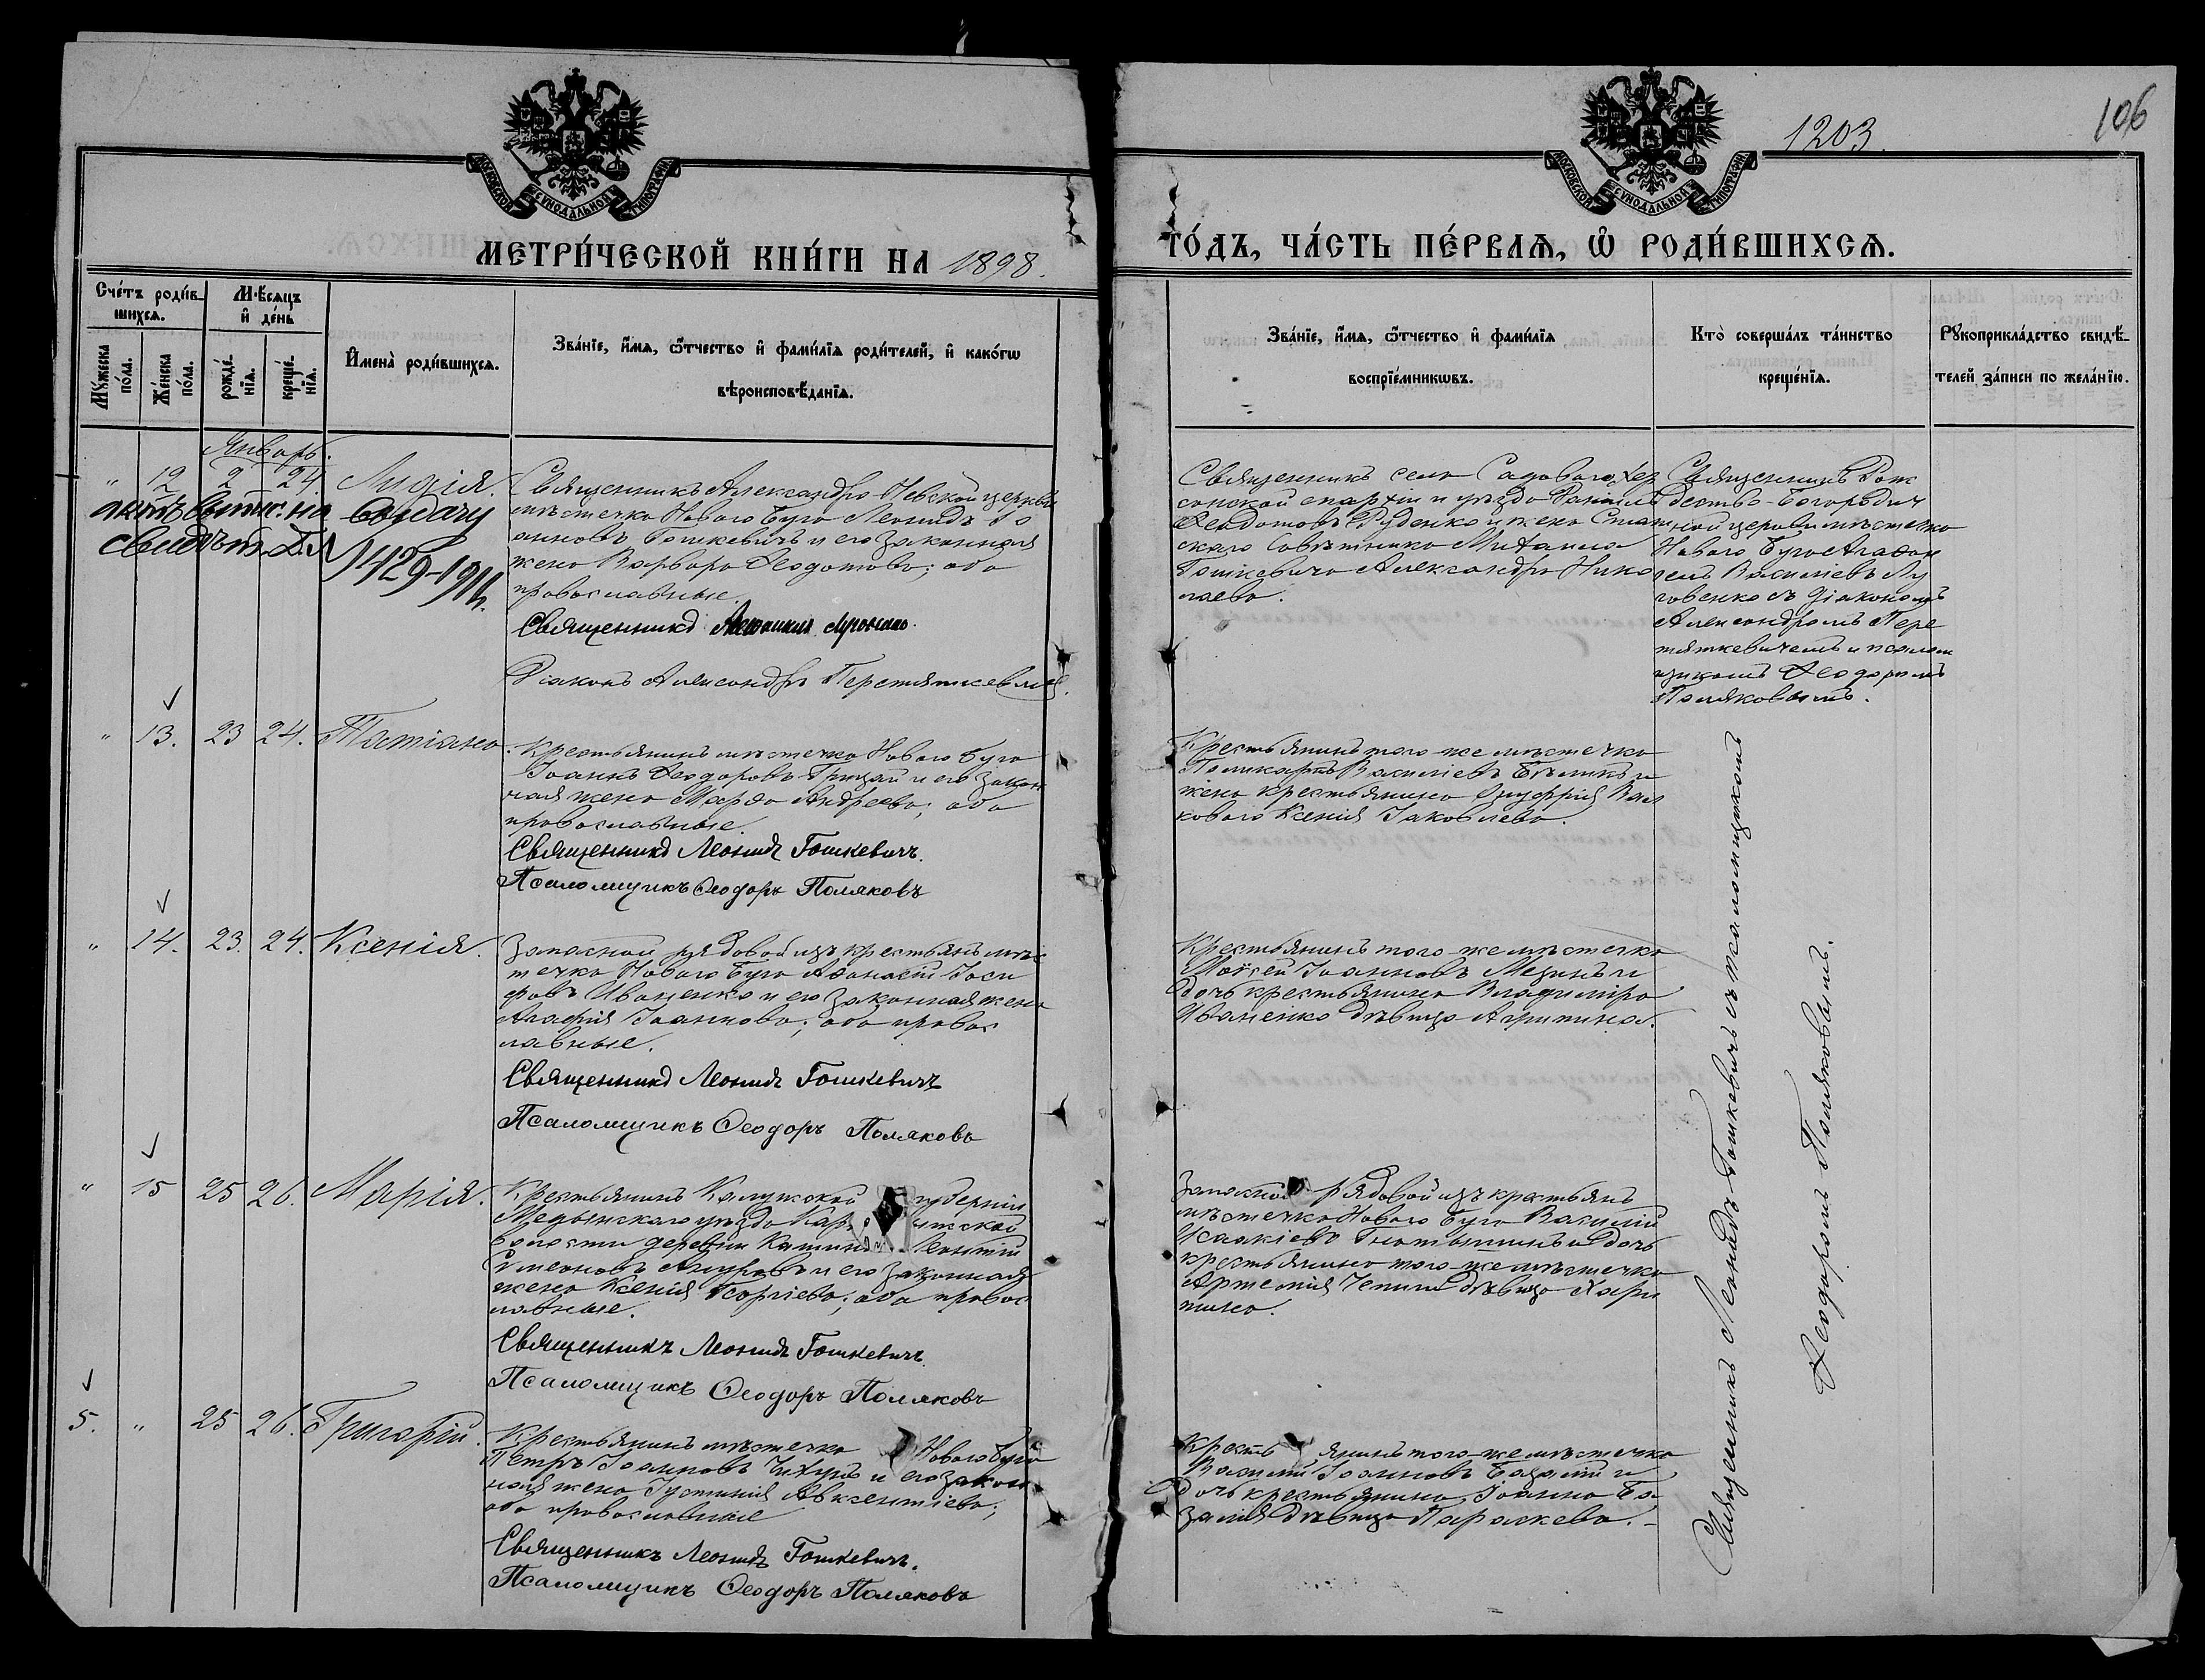 1203.
106
МОСКОВСКОЙ СѴНОДАЛЬНОЙ ТИПОГРАФІИ
МОСКОВСКОЙ СѴНОДАЛЬНОЙ ТИПОГРАФІИ
МЕТРИ́ЧЕСКОЙ КНИ́ГИ НА 1898.
ГО́ДЪ, ЧА́СТЬ ПЕ́РВАѦ, Ѡ҆ РОДИ́ВШИХСѦ.
Сче́тъ роди́в-
шихсѧ.
Мꙋ́жеска по́ла.
Же́нска по́ла.
Мѣ́сѧцъ
и҆ де́нь
рожде́нїѧ.
креще́нїѧ.
И҆мена̀ роди́вшихсѧ.
Зва́нїе, и҆́мѧ, ѻ҆́тчество и҆ фами́лїѧ роди́телей, и҆ како́гѡ
вѣроисповѣ́данїѧ.
Зва́нїе, и҆́мѧ, ѻ҆́тчество и҆ фами́лїѧ
воспрїе́мникѡвъ.
Кто̀ соверша́лъ та́инство
креще́нїѧ.
Рꙋкоприкла́дство свидѣ́-
телей за́писи по жела́нїю.
Январь.
" 12 2 24. Лидія.
выдачу
свидѣт.
429-1911.
Священникъ Александро-Невской церкви
мѣстечка Новаго Буга Леонидъ Іо
анновъ Гошкевичъ и его законная
жена Варвара Ѳеодотова; оба
православные.
Священникъ
Діаконъ Александръ Перетяткевичъ.
Священникъ села Садоваго, Хер
сонской епархіи и уѣзда Даніилъ
Ѳеодотовъ Руденко и жена Стат
скаго Совѣтника Михаила
Гошкевича Александра Нико
лаева.
Священникъ Рож
дество-Богородич
ной церкви мѣстечка
Новаго Буга Агаѳан
гелъ Василіевъ Лу
говенко съ діакономъ
Александромъ Пере
тяткевичемъ и псалом
щикомъ Ѳеодоромъ
Поляковымъ.
" 13. 23 24. Татіана.
Крестьянинъ мѣстечка Новаго Буга
Іоаннъ Ѳеодоровъ Грицай и его закон
ная жена Марѳа Андреева; оба
православные.
Священникъ Леонидъ Гошкевичъ.
Псаломщикъ Ѳеодоръ Поляковъ
Крестьянинъ того-же мѣстечка
Поликарпъ Василіевъ Бѣликъ и
жена крестьянина Онуфрія Вол
коваго Ксенія Іаковлева.
" 14. 23. 24. Ксенія.
Запасной рядовой изъ крестьянъ мѣс
течка Новаго Буга Аѳанасій Іоси
фовъ Иваненко и его законная жена
Агафія Іоаннова; оба правос
лавные.
Священникъ Леонидъ Гошкевичъ
Псаломщикъ Ѳеодоръ Поляковъ
Крестьянинъ того-же мѣстечка
Мойсей Іоанновъ Мединъ и
дочь крестьянина Владиміра
Иваненко дѣвица Агрипина.
" 15 25 26. Марія.
Крестьянинъ Калужской губерніи
Медынскаго уѣзда
волости деревни Леонтій
Симеоновъ и его законная
жена Ксенія Георгіева; оба правос
лавные.
Священникъ Леонидъ Гошкевичъ.
Псаломщикъ Ѳеодоръ Поляковъ
Запасной рядовой изъ крестьянъ
мѣстечка Новаго Буга Василій
Исаакіевъ и дочь
крестьянина того-же мѣстечка
Артемія дѣвица Хари
тина.
5. " 25 26. Григорій.
Крестьянинъ мѣстечка Новаго Буга
Петръ Іоанновъ и его закон
ная жена Іустинія Авксентіева;
оба православные
Священникъ Леонидъ Гошкевичъ.
Псаломщикъ Ѳеодоръ Поляковъ
Крестьянинъ того-же мѣстечка
Василій Іоанновъ Базалій и
дочь крестьянина Іоанна Ба-
залія дѣвица Параскева.
Священникъ Леонидъ Гошкевичъ съ псаломщикомъ
Ѳеодоромъ Поляковымъ.